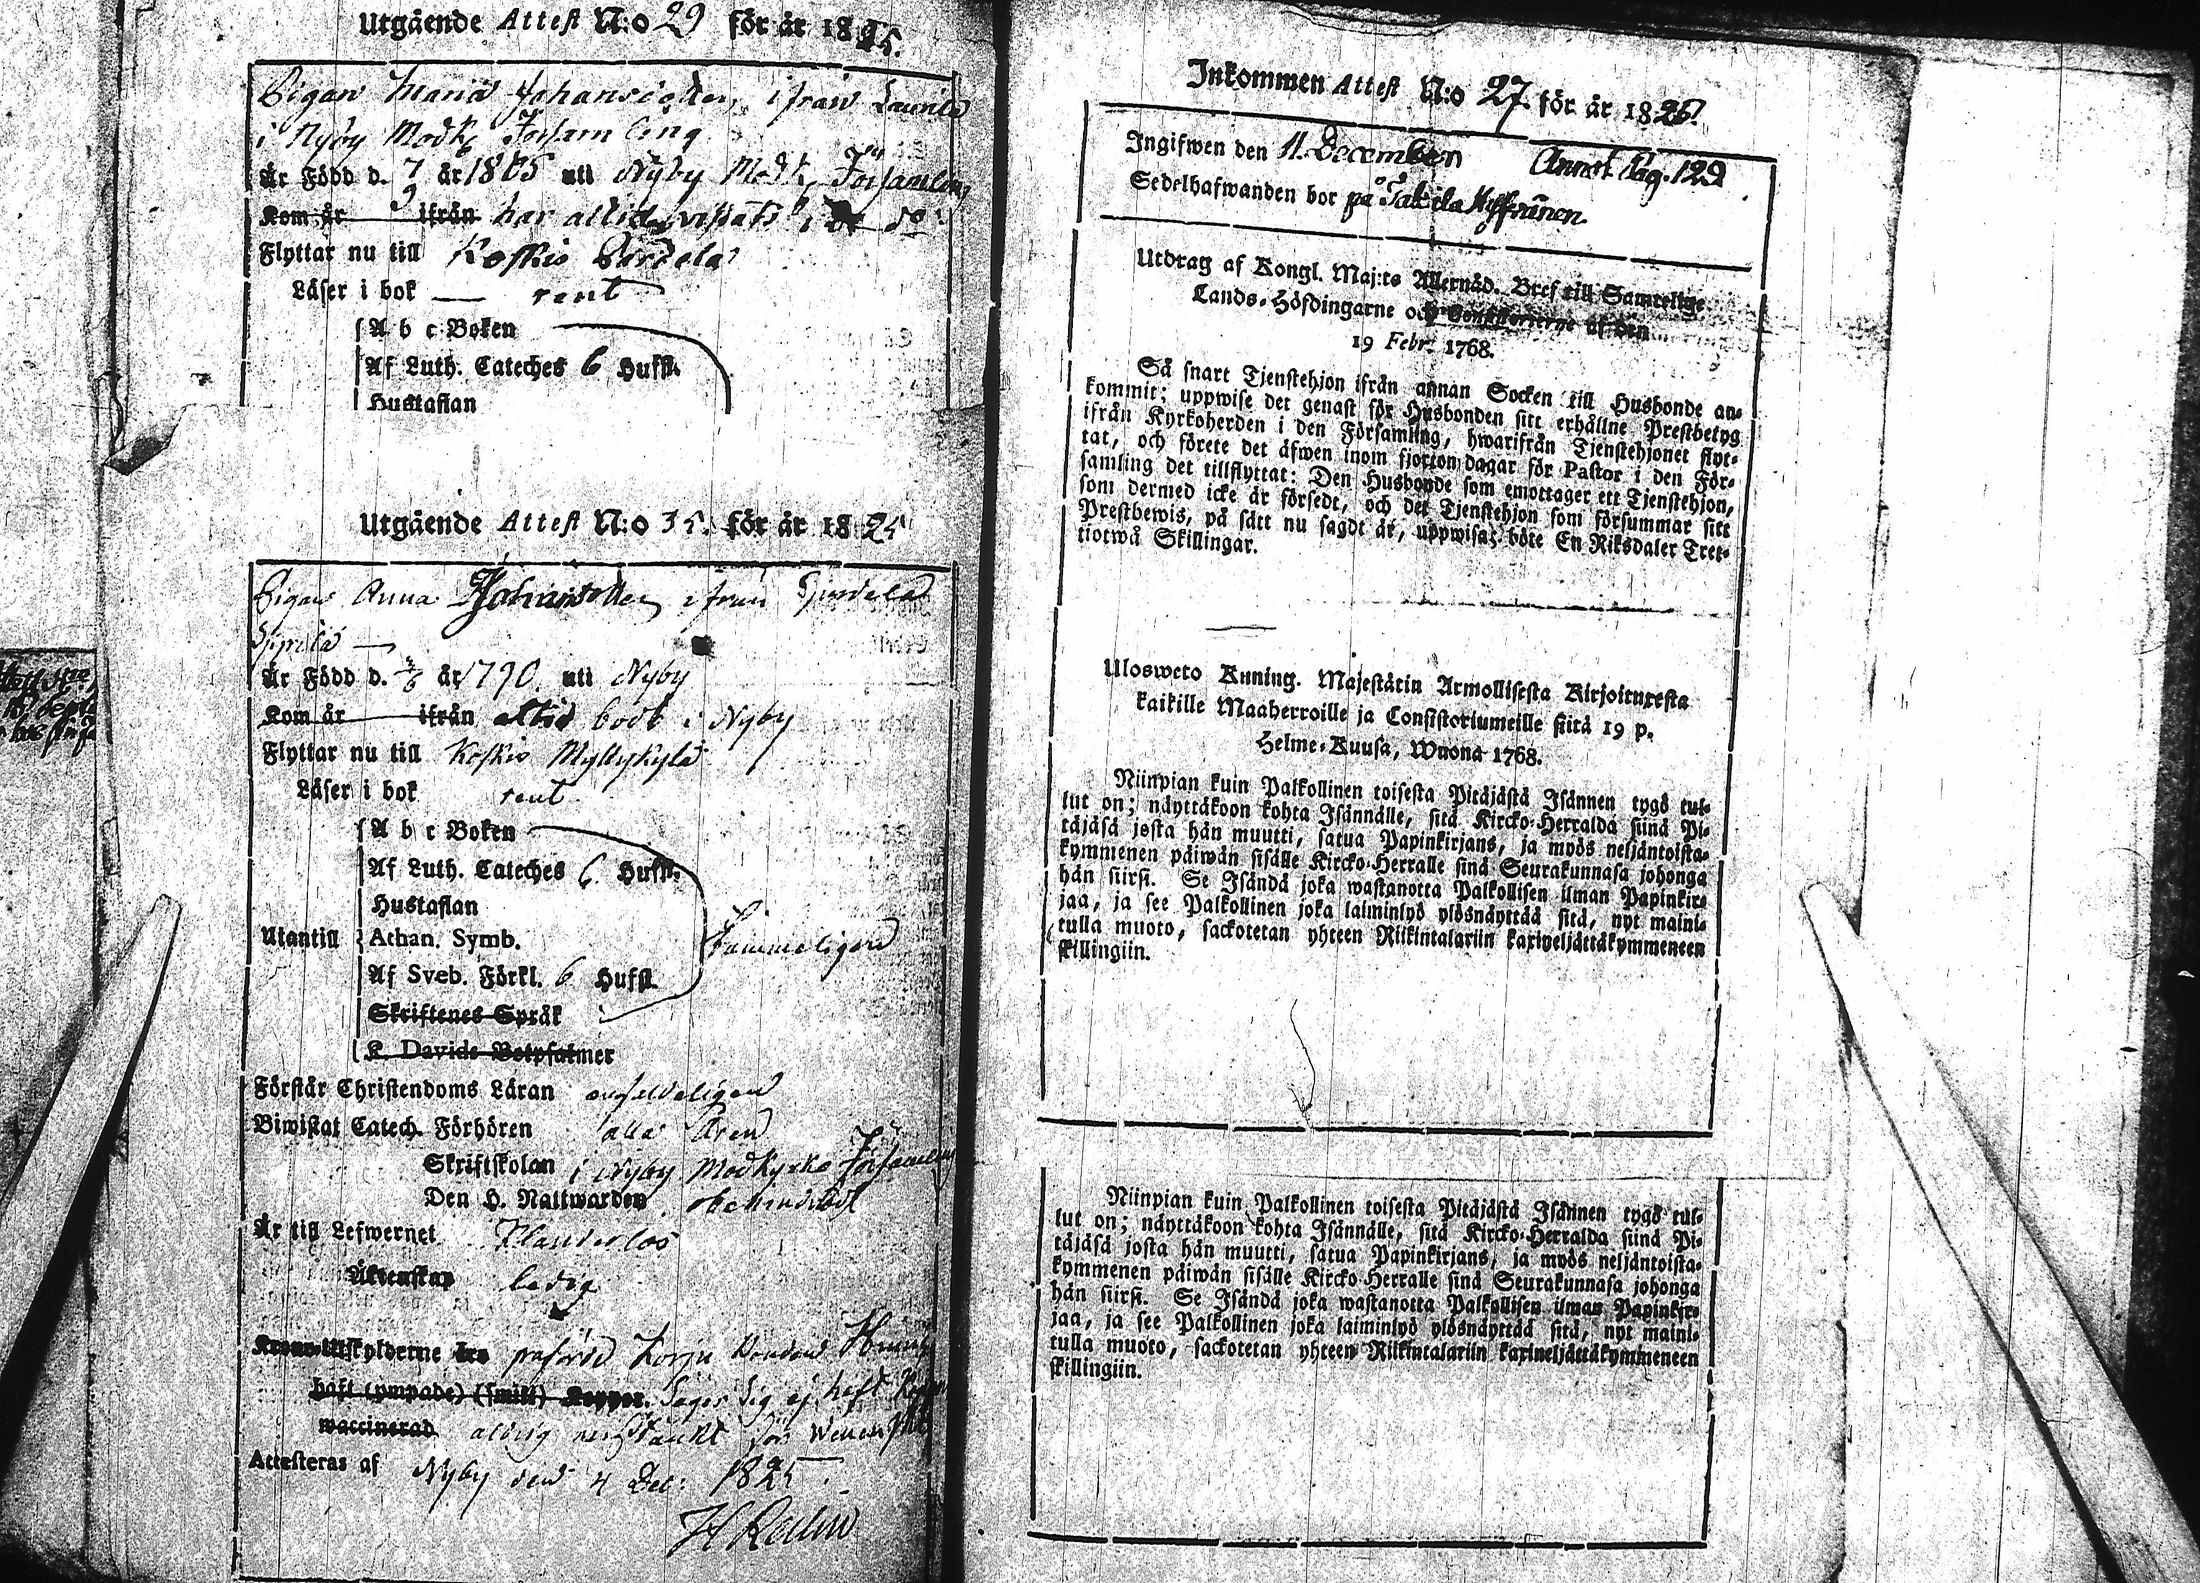 Utgående Attest N:o 29 för år 1825.
Pigan Maria Johansdotter, ifrån Laurila
i Nyby Modk. Församling
Är Född d. 7/9 år 1805 uti Nyby Modk. Församling
Kom år ifrån har altid vistats i do
Flyttar nu till Koskis
Läser i bok rent
A b c Boken
Af Luth. Cateches 6 Hufst.
Hustaflan
Utgående Attest N:o 35. för år 1825
Pigan Anna Johansdotter ifrån
Är Född d. år 1790 uti Nyby
Kom år ifrån altid bodt i Nyby
Flyttar nu till Koskis Myllykylä
Läser i bok rent
A b c Boken
Af Luth. Cateches 6 Hufst.
Hustaflan
Utantill Athan. Symb.
Af Sveb. Förkl. 6 Hufst.
Skriftenes Språk
K. Davids Botpsalmer
Förstår Christendoms Läran
Biwistat Catech. Förhören alla åren
Skriftskolan i Nyby Modkyrko Församling
Den H. Nattwarden obehindrad
Är till Lefwernet Klanderlös
Äktenskap ledig
Krono-Utskylderne äro
haft (ympade) (små) Koppor. Säger sig ej haft
waccinerad aldrig
Attesteras af Nyby den 4 Dec: 1825.
Inkommen Attest N:o 27 för år 1825.
Ingifwen den 11 December Annot. Pag. 129
Sedelhafwanden bor på
Utdrag af Kongl. Maj:ts Allernåd. Bref till Samtelige
Lands-Höfdingarne och Consistorierne af den
19 Febr. 1768.
Så snart Tjenstehjon ifrån annan Socken till Husbonde an-
kommit; uppwise det genast för Husbonden sitt erhållne Prestbetyg
ifrån Kyrkoherden i den Församling, hwarifrån Tjenstehjonet flyt-
tat, och förete det äfwen inom fjorton dagar för Pastor i den För-
samling det tillflyttat: Den Husbonde som emottager ett Tjenstehjon,
som dermed icke är försedt, och det Tjenstehjon som försummar sitt
Prestbewis, på sätt nu sagdt är, uppwisa; böte En Riksdaler Tret-
tiotwå Skillingar.
Ulosweto Kuning. Majestätin Armollisesta Kirjoituxesta
kaikille Maaherroille ja Consistoriumeille siitä 19 p.
Helme-Kuusa, Wuona 1768.
Niinpian kuin Palkollinen toisesta Pitäjästä Isännen tygö tul-
lut on; näyttäkoon kohta Isännälle, sitä Kircko-Herralda siinä Pi-
täjäsä josta hän muutti, satua Papinkirjans, ja myös neljäntoista-
kymmenen päiwän sisälle Kircko-Herralle sinä Seurakunnasa johonga
hän siirsi. Se Isändä joka wastanotta Palkollisen ilman Papinkir-
jaa, ja see Palkollinen joka laiminlyö ylösnäyttää sitä, nyt maini-
tulla muoto, sackotetan yhteen Riikintalariin kaxineljättäkymmeneen
skillingiin.
Niinpian kuin Palkollinen toisesta Pitäjästä Isännen tygö tul-
lut on; näyttäkoon kohta Isännälle, sitä Kircko-Herralda siinä Pi-
täjäsä josta hän muutti, satua Papinkirjans, ja myös neljäntoista-
kymmenen päiwän sisälle Kircko-Herralle sinä Seurakunnasa johonga
hän siirsi. Se Isändä joka wastanotta Palkollisen ilman Papinkir-
jaa, ja see Palkollinen joka laiminlyö ylösnäyttää sitä, nyt maini-
tulla muoto, sackotetan yhteen Riikintalariin kaxineljättäkymmeneen
skillingiin.